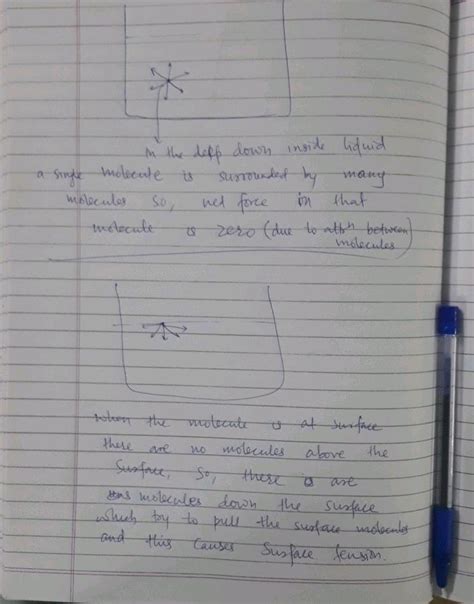 In the deep down inside liquid
a single molecule is surrounded by many
molecules so, net force on that
molecule is zero (due to attrⁿ between
molecules)
When the molecule is at surface
there are no molecules above the
surface, so, there is are
molecules down the surface
which try to pull the surface molecules
and this causes surface tension.